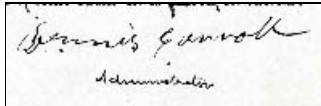 Dennis Carroll
Administrator